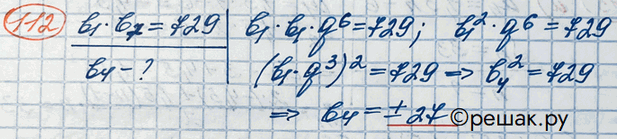 112 b₁ · b₇ = 729 | b₁ · b₁ · q⁶ = 729; b₁² · q⁶ = 729
b₄ - ? | (b₁ · q³)² = 729 => b₄² = 729
=> b₄ = ± 27
©решак.ру